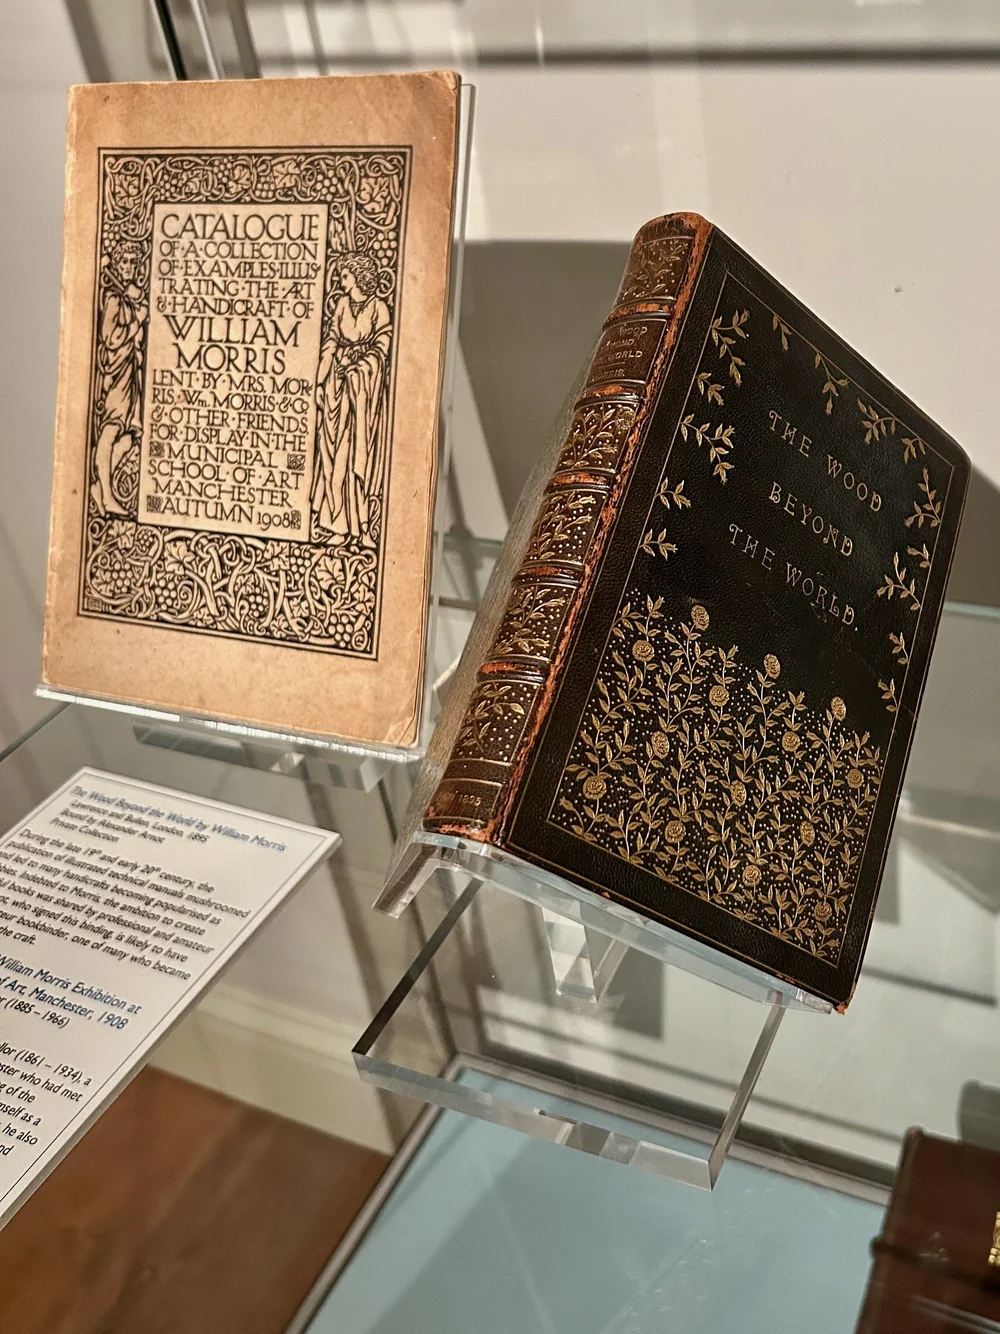 CATALOGUE
OF·A·COLLECTION
OF·EXAMPLES·ILLUS
TRATING·THE·ART
&·HANDICRAFT·OF
WILLIAM
MORRIS
LENT·BY·MRS·MOR-
RIS·Wm·MORRIS·&·Co
&·OTHER·FRIENDS
FOR·DISPLAY·IN·THE
MUNICIPAL
SCHOOL·OF·ART
MANCHESTER
AUTUMN 1908
WOOD
WORLD
1895
THE WOOD
BEYOND
THE WORLD.
The Wood Beyond the World by William Morris
Lawrence and Bullen, London, 1895
Bound by Alexander Arnot
Private Collection
During the late 18th and early 20th century, the
publication of illustrated technical manuals mushroomed
led to many handicrafts becoming popularised as
Indebted to Morris, the ambition to create
books was shared by professional and amateur
who signed this binding, is likely to have
bookbinder, one of many who became
the craft.
William Morris Exhibition at
of Art, Manchester, 1908
(1885–1966)
(1861–1934), a
who had met
of the
as a
he also